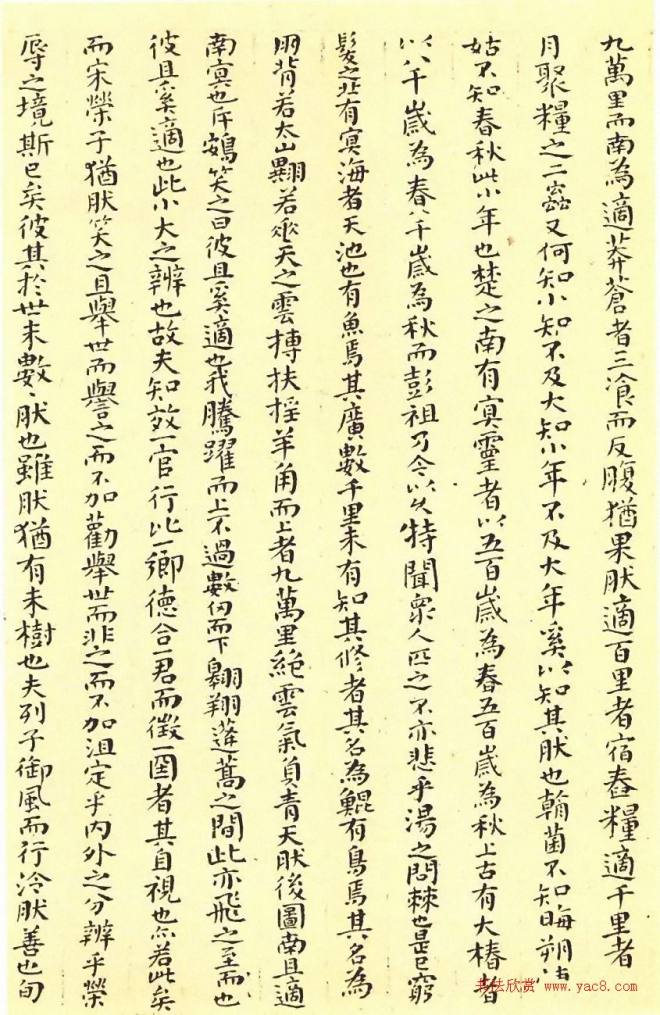 九萬里而南為適莽蒼者三飡而反腹猶果肰適百里者宿舂糧適千里者
月聚糧之二蟲又何知小知不及大知小年不及大年奚以知其肰也朝菌不知晦朔
姑不知春秋此小年也楚之南有冥靈者以五百歲為春五百歲為秋上古有大椿者
以八千歲為春八千歲為秋而彭祖乃今以久特聞衆人匹之不亦悲乎湯之問棘也是已窮
髮之北有冥海者天池也有魚焉其廣數千里未有知其修者其名為鯤有鳥焉其名為
朋背若太山翼若垂天之雲摶扶搖羊角而上者九萬里絕雲氣負青天肰後圖南且適
南冥也斥鴳笑之曰彼且奚適也我騰躍而上不過數仞而下翱翔蓬蒿之間此亦飛之至而也
彼且奚適也此小大之辨也故夫知效一官行比一鄉德合一君而徵一國者其自視也尒若此矣
而宋榮子猶肰笑之且舉世而譽之而不加勸舉世而非之而不加沮定乎內外之分辨乎榮
辱之境斯已矣彼其於世未數〻肰也雖肰猶有未樹也夫列子御風而行泠肰善也旬
书法欣赏 www.yac8.com